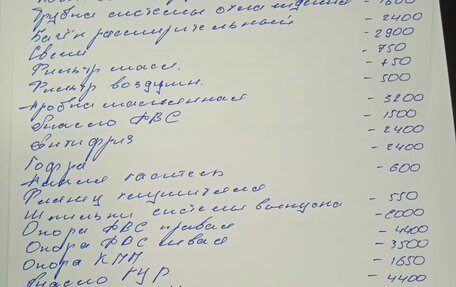 Трубка системы охлаждения - 1600
Бачок расширительный - 2400
Свечи - 2900
Фильтр масл. - 750
Фильтр воздушн. - 450
Пробка маслянная - 500
Масло ДВС - 3200
Антифриз - 1500
Гофра - 2400
Пламя гаситель - 2400
Фланец глушителя - 600
Шпильки системы выпуска - 550
Опора ДВС правая - 2000
Опора ДВС левая - 4400
Опора КПП - 3500
Масло ГУР - 1650
- 4400